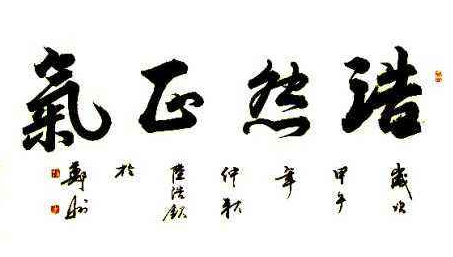 浩然正氣
歲次
甲午
年
仲秋
陸浩
於
鄭州